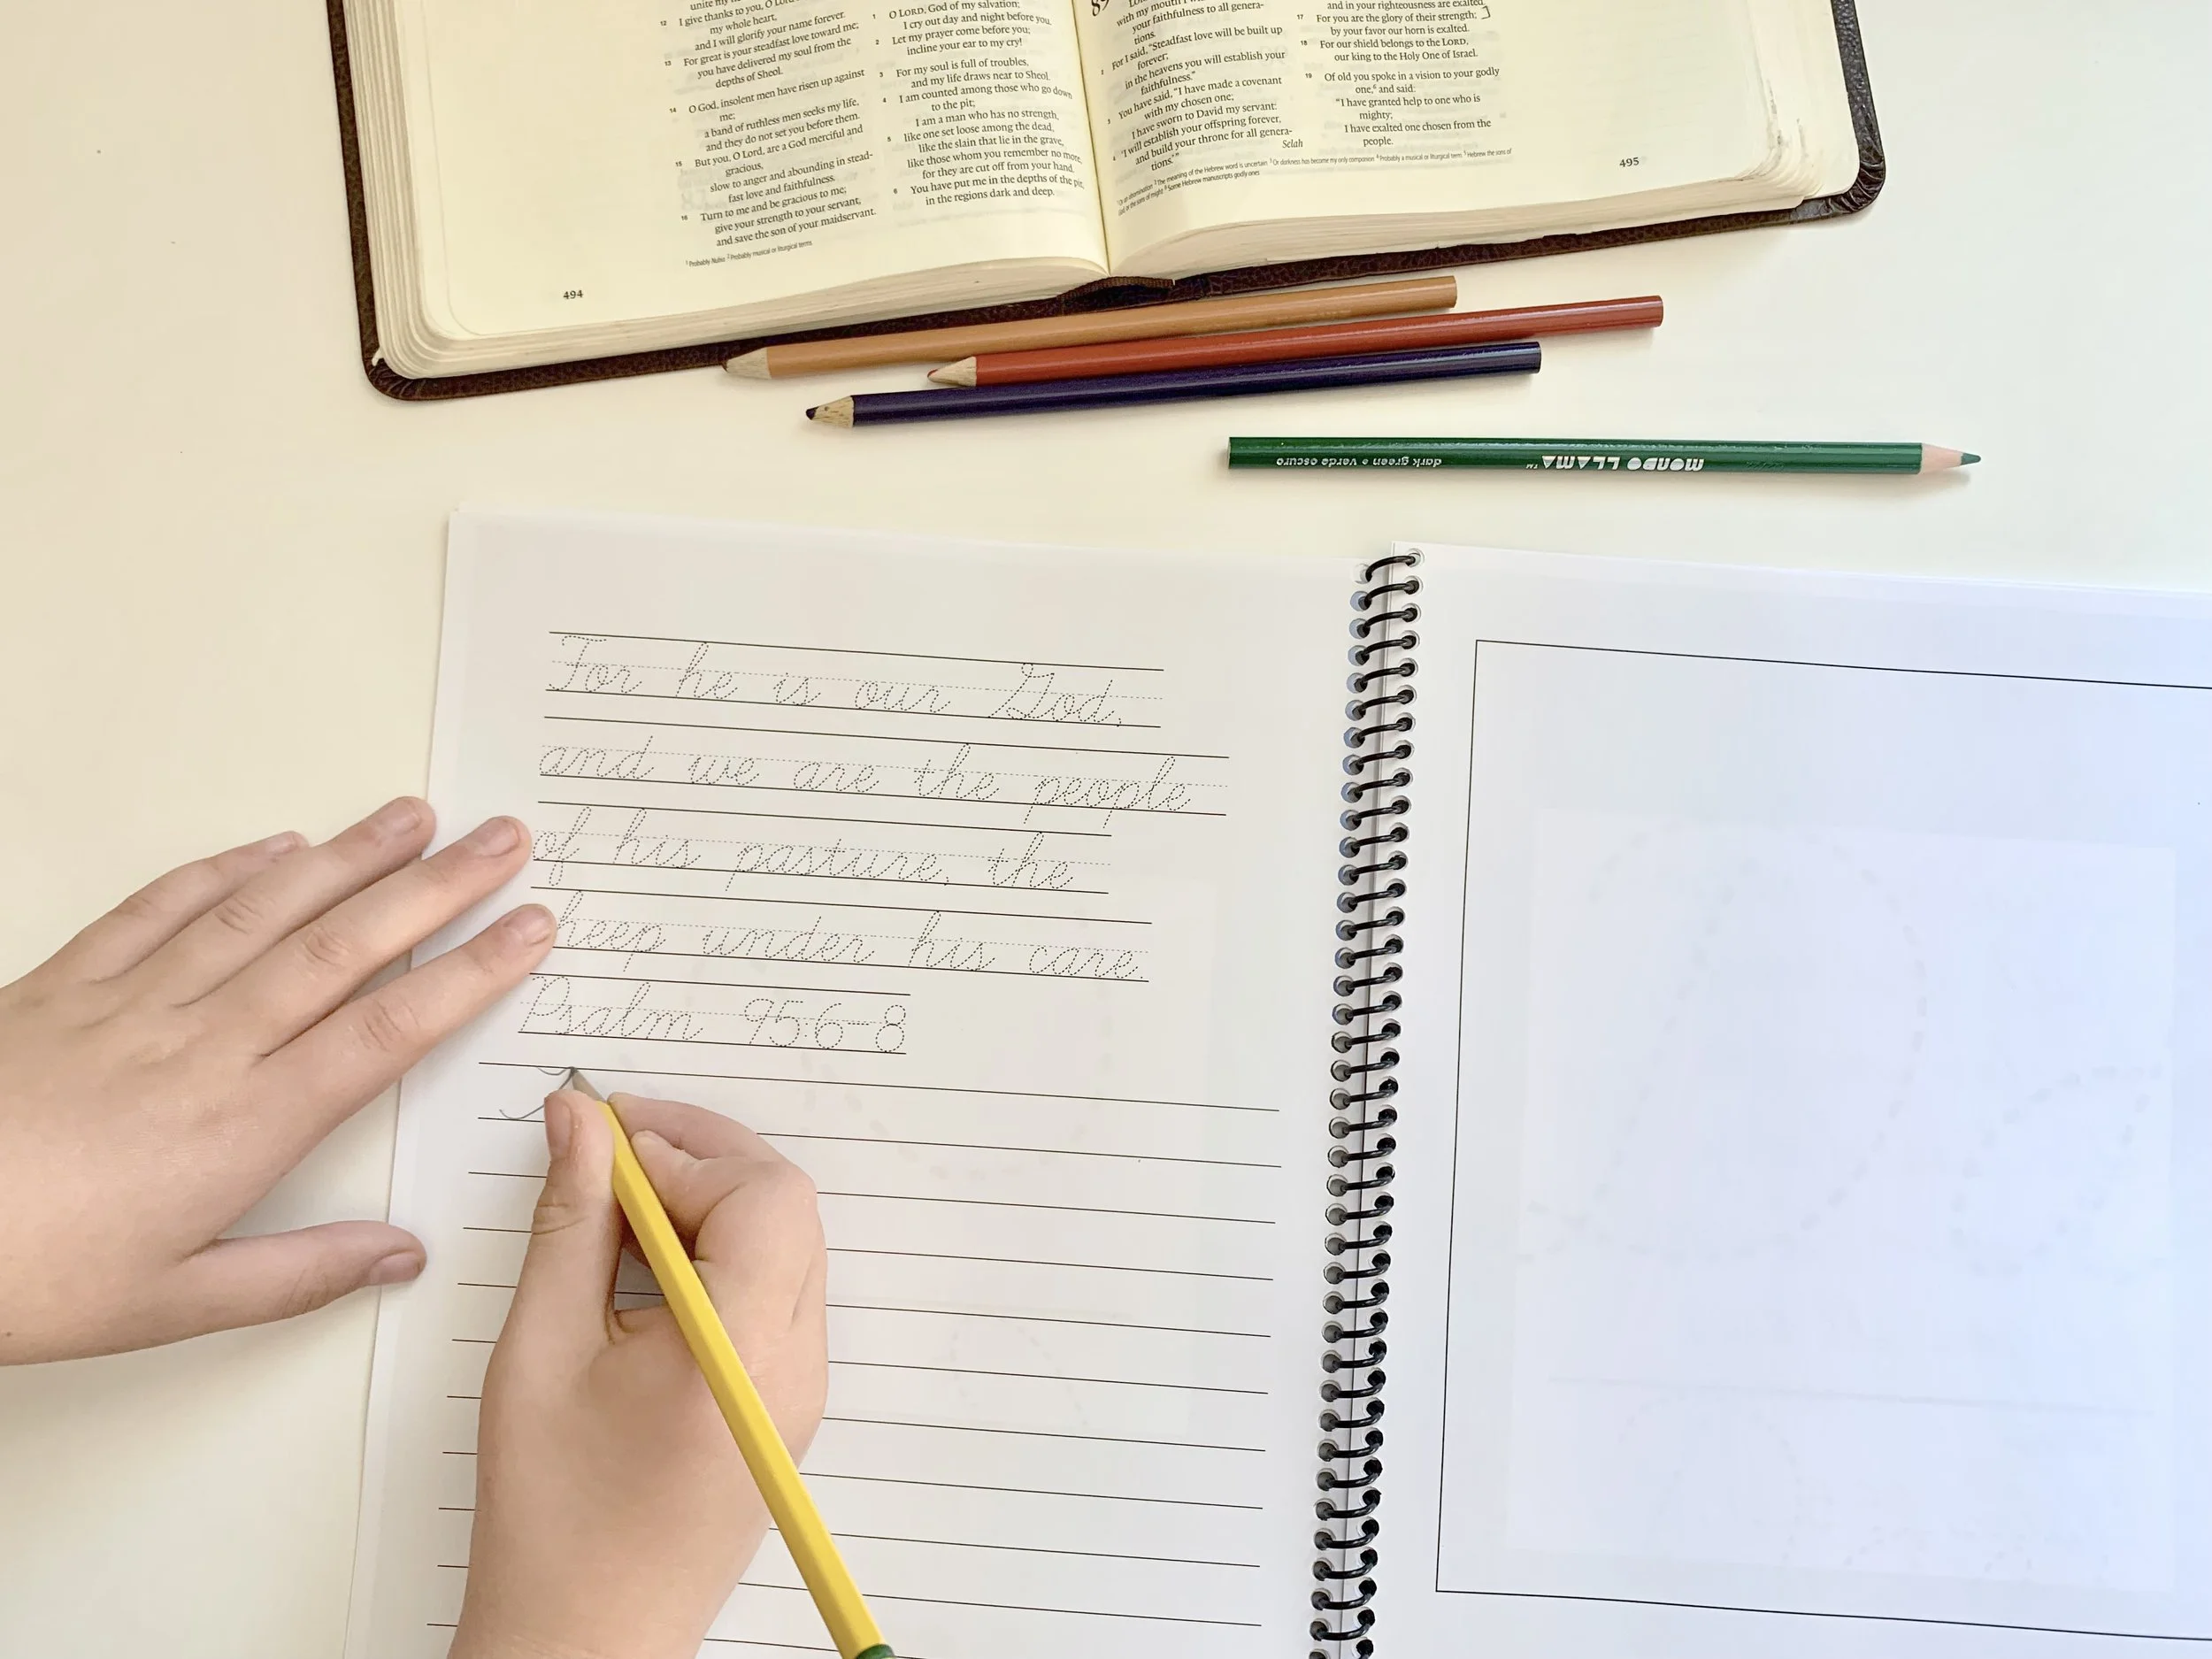 unite my
12 I give thanks to you, O Lord
my whole heart,
and I will glorify your name forever.
13 For great is your steadfast love toward me;
you have delivered my soul from the
depths of Sheol.
14 O God, insolent men have risen up against
me;
a band of ruthless men seeks my life,
and they do not set you before them.
15 But you, O Lord, are a God merciful and
gracious,
slow to anger and abounding in stead-
fast love and faithfulness.
16 Turn to me and be gracious to me;
give your strength to your servant,
and save the son of your maidservant.
1 Probably 2 Probably musical or liturgical terms
494
1 O LORD, God of my salvation;
I cry out day and night before you.
2 Let my prayer come before you;
incline your ear to my cry!
3 For my soul is full of troubles,
and my life draws near to Sheol.
4 I am counted among those who go down
to the pit;
I am a man who has no strength,
5 like one set loose among the dead,
like the slain that lie in the grave,
like those whom you remember no more,
for they are cut off from your hand.
6 You have put me in the depths of the pit,
in the regions dark and deep.
89
with my mouth I
your faithfulness to all genera-
tions.
2 For I said, "Steadfast love will be built up
forever;
in the heavens you will establish your
faithfulness."
3 You have said, "I have made a covenant
with my chosen one;
I have sworn to David my servant:
4 'I will establish your offspring forever,
and build your throne for all genera-
tions.'" Selah
and in your righteousness are exalted.
17 For you are the glory of their strength;
by your favor our horn is exalted.
18 For our shield belongs to the LORD,
our king to the Holy One of Israel.
19 Of old you spoke in a vision to your godly
one,6 and said:
"I have granted help to one who is
mighty;
I have exalted one chosen from the
people.
The meaning of the Hebrew word is uncertain 3 Or darkness has become my only companion 4 Probably a musical or liturgical term 5 Hebrew the sons of
God, or the sons of might 6 Some Hebrew manuscripts godly ones
495
MONDO LLAMA™ dark green • verde oscuro
For he is our God,
and we are the people
of his pasture, the
heep under his care.
Psalm 95:6-8